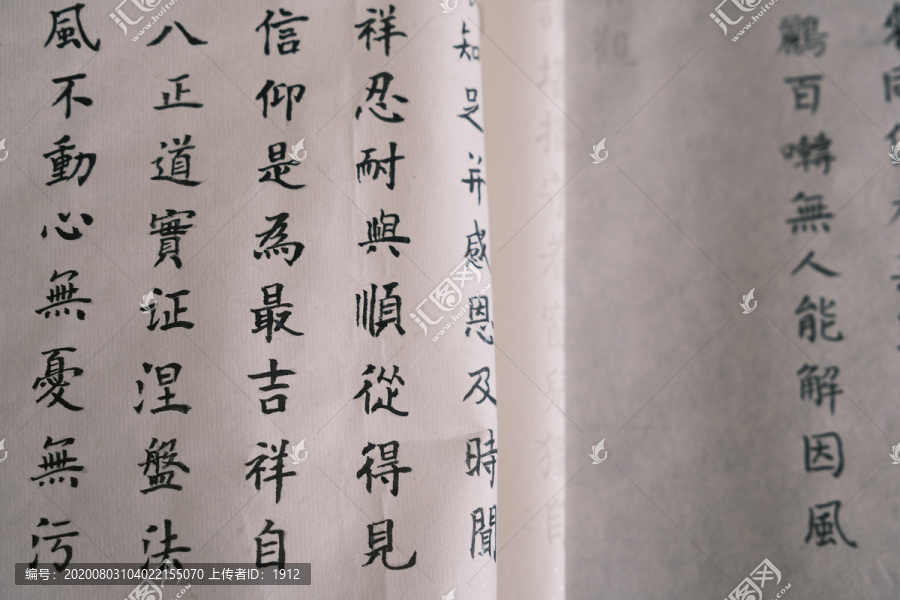 同
鸝百囀無人能解因風
知足并感恩及時聞
祥忍耐與順從得見
信仰是為最吉祥自
八正道實证涅盤法
風不動心無憂無污
汇图网
编号：20200803104022155070 上传者ID：1912